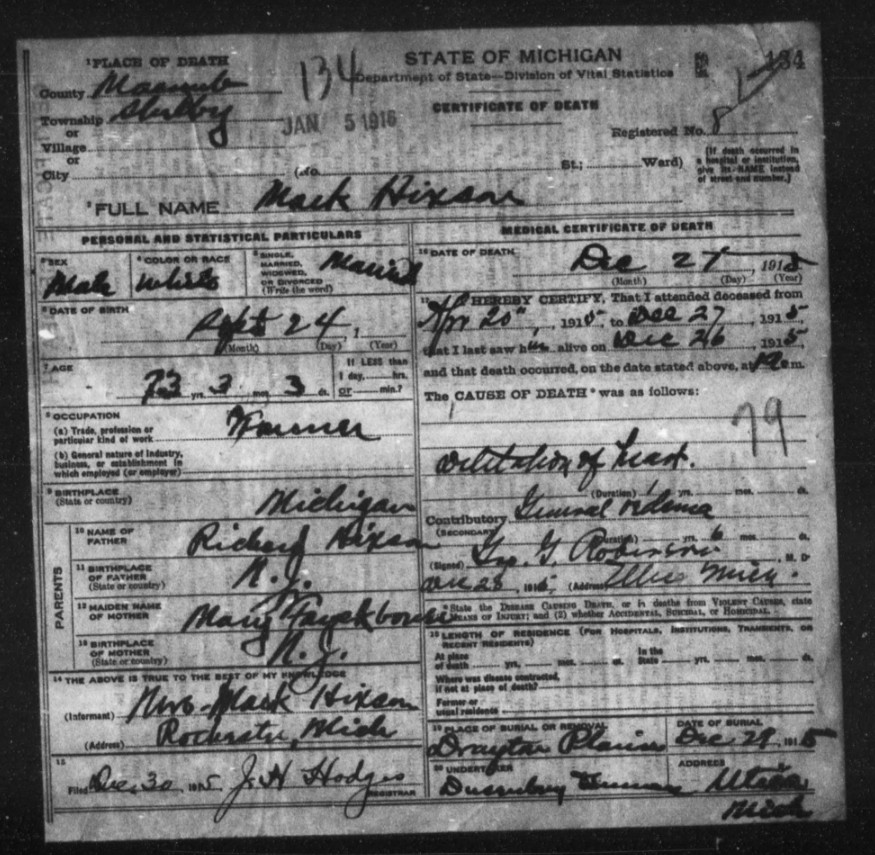 STATE OF MICHIGAN
Department of State—Division of Vital Statistics
CERTIFICATE OF DEATH
134
134
JAN 5 1916
1 PLACE OF DEATH
County Macomb
Township Shelby
or
Village
or
City
(No. St.; Ward)
Registered No. 8
(If death occurred in
a hospital or institution,
give its NAME instead
of street and number.)
2 FULL NAME Mack Hixson
PERSONAL AND STATISTICAL PARTICULARS
3 SEX
Male
4 COLOR OR RACE
White
5 SINGLE,
MARRIED,
WIDOWED,
OR DIVORCED
(Write the word)
Married
6 DATE OF BIRTH
Sept 24, 1
(Month) (Day) (Year)
7 AGE
73 yrs. 3 mos. 3 ds.
If LESS than
1 day, hrs.
or min.?
8 OCCUPATION
(a) Trade, profession or
particular kind of work Farmer
(b) General nature of industry,
business, or establishment in
which employed (or employer)
9 BIRTHPLACE
(State or country)
Michigan
PARENTS
10 NAME OF
FATHER
Richard Hixson
11 BIRTHPLACE
OF FATHER
(State or country)
N.J.
12 MAIDEN NAME
OF MOTHER
Mary
13 BIRTHPLACE
OF MOTHER
(State or country)
N.J.
14 THE ABOVE IS TRUE TO THE BEST OF MY KNOWLEDGE
(Informant) Mrs. Mack Hixson
(Address) Rochester, Mich
15
Filed Dec. 30, 1915 J H Hodges
REGISTRAR
MEDICAL CERTIFICATE OF DEATH
16 DATE OF DEATH
Dec 27, 1915
(Month) (Day) (Year)
17 I HEREBY CERTIFY, That I attended deceased from
Apr 20, 1915, to Dec 27, 1915
that I last saw him alive on Dec 26, 1915
and that death occurred, on the date stated above, at 12 m.
The CAUSE OF DEATH* was as follows:
79
Dilitation of heart.
(Duration) 1 yrs. mos. ds.
Contributory General Oedema
(SECONDARY)
(Duration) yrs. 6 mos. ds.
(Signed) Geo. G. Robinson, M. D.
Dec 28, 1915 (Address) Mich.
*State the DISEASE CAUSING DEATH, or in deaths from VIOLENT CAUSES, state
MEANS OF INJURY; and (2) whether ACCIDENTAL, SUICIDAL, or HOMICIDAL.
18 LENGTH OF RESIDENCE (FOR HOSPITALS, INSTITUTIONS, TRANSIENTS, OR
RECENT RESIDENTS)
At place
of death yrs. mos. ds.
In the
State yrs. mos. ds.
Where was disease contracted,
if not at place of death?
Former or
usual residence
19 PLACE OF BURIAL OR REMOVAL
Drayton Plains
DATE OF BURIAL
Dec 29, 1915
20 UNDERTAKER
ADDRESS
Utica
Mich